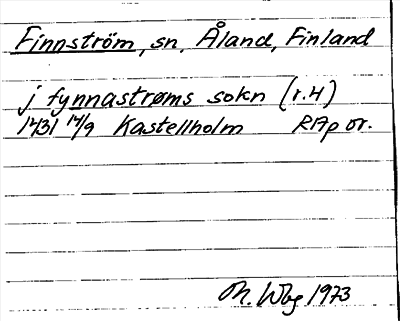 Finnström, sn, Åland, Finland
j fynnastrøms sokn (r.4)
1431 14/9 Kastellholm RAp or.
M. Wbg 1973